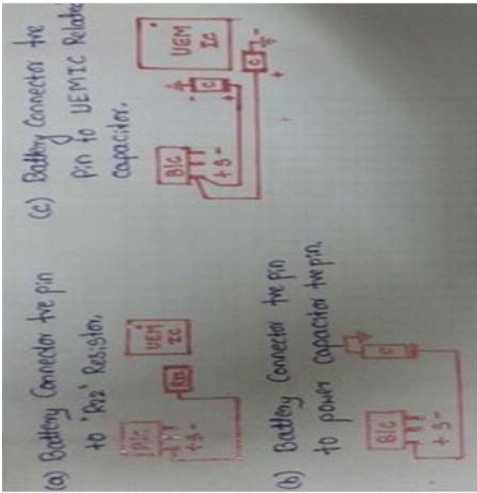 (a) Battery Connector tve pin
to 'R22' Resistor.
B/C
+ S -
R22
UEM
IC
(b) Battery Connector tve pin
to power capacitor tve pin.
B/C
+ S -
C
(c) Battery Connector tve
pin to UEMIC Related
capacitor.
B/C
+ S -
C
- +
UEM
IC
C
+ -